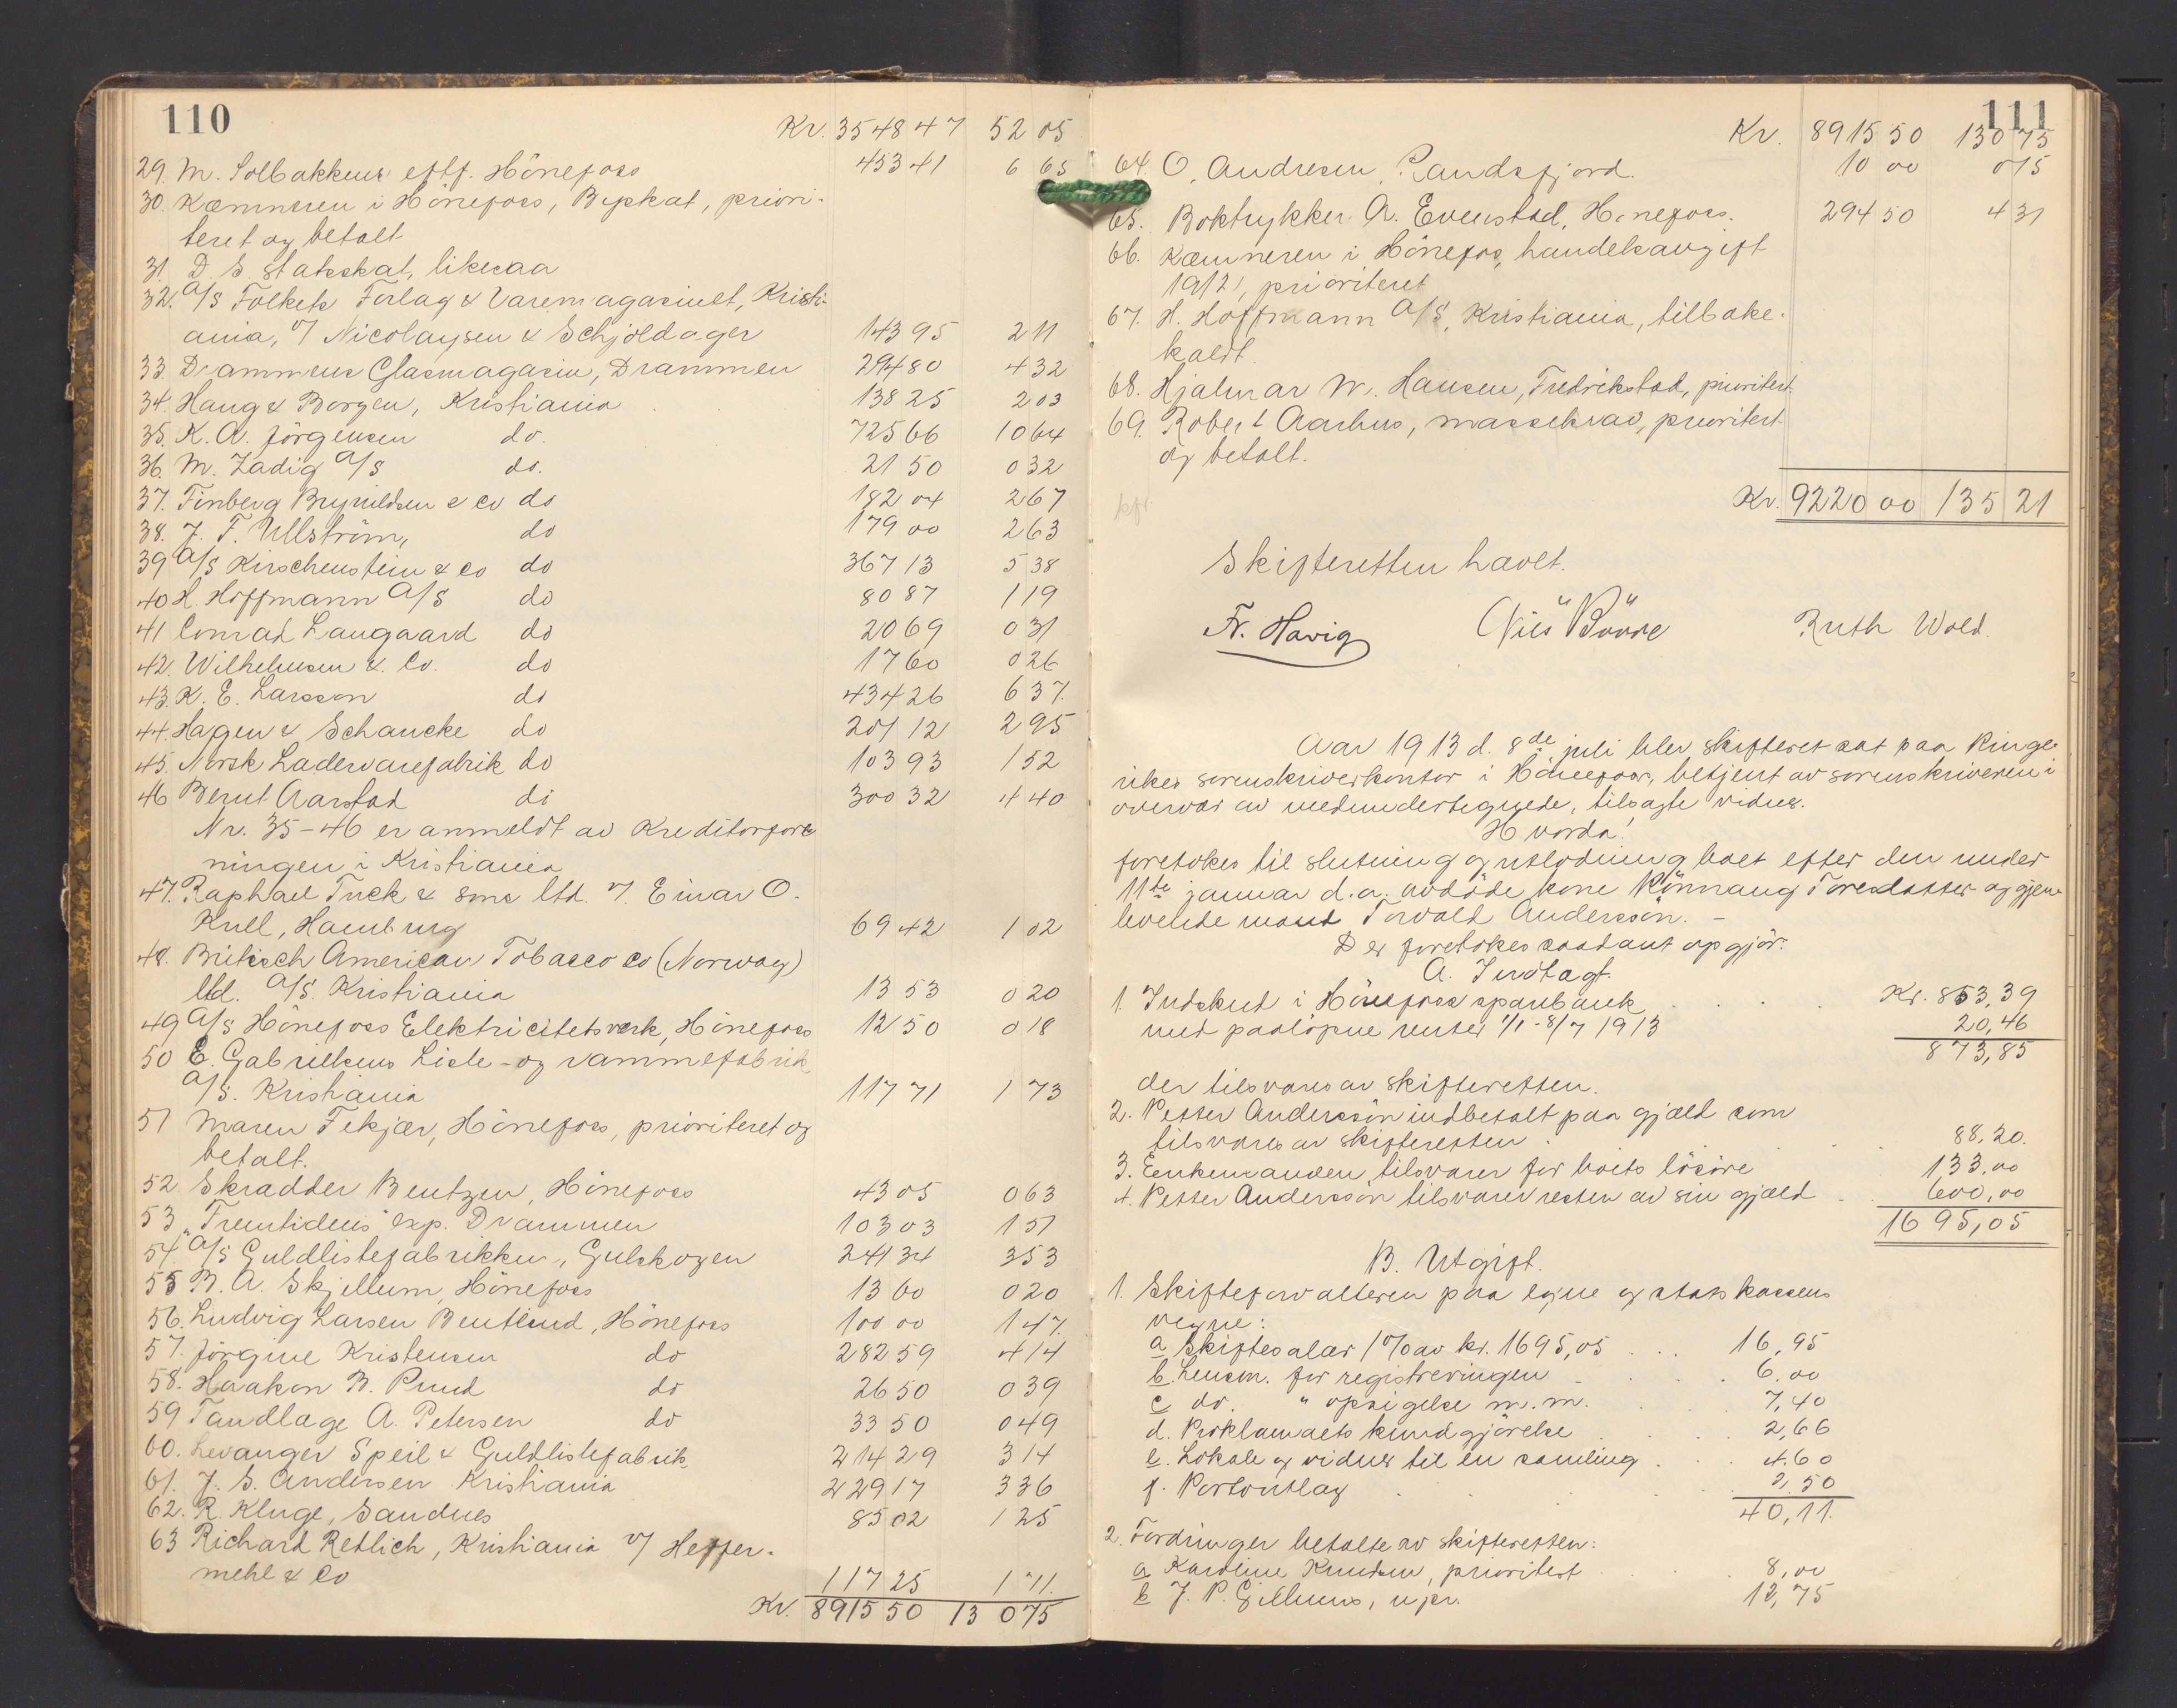 110
Kr. 3548 47 52 05
29. M. Solbakkens eftf. Hönefoss 453 41 6 65
30. Kæmneren i Hönefoss, Byskat, priori-
teret og betalt
31. D. S. statsskat, likesaa
32. A/S Folkets Forlag & Varemagasinet, Kristi-
ania, v/ Nicolaysen & Schjöldager 143 95 2 11
33. Drammens Glasmagasin, Drammen 294 80 4 32
34. Haug & Borgen, Kristiania 138 25 2 03
35. K. A. Jörgensen do. 725 66 10 64
36. M. Zadig A/S do. 21 50 0 32
37. Finberg Brynildsen & Co do 182 04 2 67
38. J. F. Ullström, do 179 00 2 63
39 A/S Kirschenstein & Co do 367 13 5 38
40 H. Hoffmann A/S do 80 87 1 19
41 Conrad Langaard do 20 69 0 31
42. Wilhelmsen & Co. do 17 60 0 26
43. K. E. Larsson do 434 26 6 37.
44. Hagen & Schancke do 201 12 2 95
45. Norsk Lædervarefabrik do 103 93 1 52
46 Bernt Aarstad do 300 32 4 40
Nr. 35-46 er anmeldt av Kreditorfore
ningen i Kristiania
47. Raphael Tuck & sons ltd. v/ Einar O.
Kull, Hamburg 69 42 1 02
48. Britisch American Tobacco Co (Norway)
ltd. A/S. Kristiania 13 53 0 20
49 A/S Hönefoss Elektricitetsverk, Hönefoss 12 50 0 18
50 E. Gabrielsens Liste- og rammefabrik
A/S. Kristiania 117 71 1 73
51 Maren Fekjær, Hönefoss, prioriteret og
betalt.
52. Skrædder Bentzen, Hönefoss 43 05 0 63
53 "Fremtidens" exp. Drammen 103 03 1 51
54 A/S Guldlistefabrikken, Gulskogen 241 34 3 53
55 B. A. Skjellum, Hönefoss 13 60 0 20
56. Ludvig Larsen Bentsrud, Hönefoss 100 00 1 47.
57. Jörgine Kristensen do 282 59 4 14
58. Haakon B. Pruud do 26 50 0 39
59 Tandlæge A. Petersen do 33 50 0 49
60. Levanger Speil & Guldlistefabrik 214 29 3 14
61. J. S. Andersen Kristiania 229 17 3 36
62. R. Kluge, Sandnes 85 02 1 25
63 Richard Retlich, Kristiania v/ Heffer-
mehl & Co 117 25 1 71.
Kr. 8915 50 130 75
111
Kr. 8915 50 130 75
64. O. Andresen, Randsfjord. 10 00 0 15
65. Boktrykker A. Evenstad, Hönefoss. 294 50 4 31
66. Kæmneren i Hönefoss, handelsavgift
1912, prioriteret
67. H. Hoffmann A/S, Kristiania, tilbake-
kaldt.
68. Hjalmar W. Hansen, Fredrikstad, prioritert.
69. Robert Aarhus, massekrav, prioritert
og betalt.
Kr. 9220 00 135 21
Skifteretten hævet.
Fr. Havig Nils Ruth Wold.
Aar 1913 d. 8de juli blev skifteret sat paa Ringe-
rikes sorenskriverkontor i Hönefoss, betjent av sorenskriveren i
overvær av medundertegnede, tilsagte vidner.
Hvorda!
foretokes til slutning og utlodning boet efter den under
11te januar d.a. avdöde kone Rönnaug Toresdatter og gjen-
levende mand Torvald Anderssön. -
Der foretokes saadant opgjör:
A. Indtægt.
1. Indskud i Hönefoss sparebank Kr. 853,39
med paalöpne renter 1/1-8/7 1913 20,46
873,85
der tilsvares av skifteretten.
2. Petter Anderssön indbetalt paa gjæld som
tilsvares av skifteretten 88,20.
3. Enkemanden tilsvarer for boets lösöre 133,00
4. Petter Anderssön tilsvarer resten av sin gjæld 600,00
1695,05
B. Utgift.
1. Skifteforvalteren paa egne og statskassens
vegne:
a Skiftesalær 1% av kr. 1695,05 16,95
b. Lensm. for registreringen 6,00
c do. " opsigelse m.m. 7,40
d. Proklamaets kundgjörelse 2,66
e. Lokale og vidner til en samling 4.60
f. Portoutlæg 2,50
40,11.
2. Fordringer betalte av skifteretten:
a Karoline Knudsen, prioritert 8,00
b J. P. Gjellmas, upr. 12,75